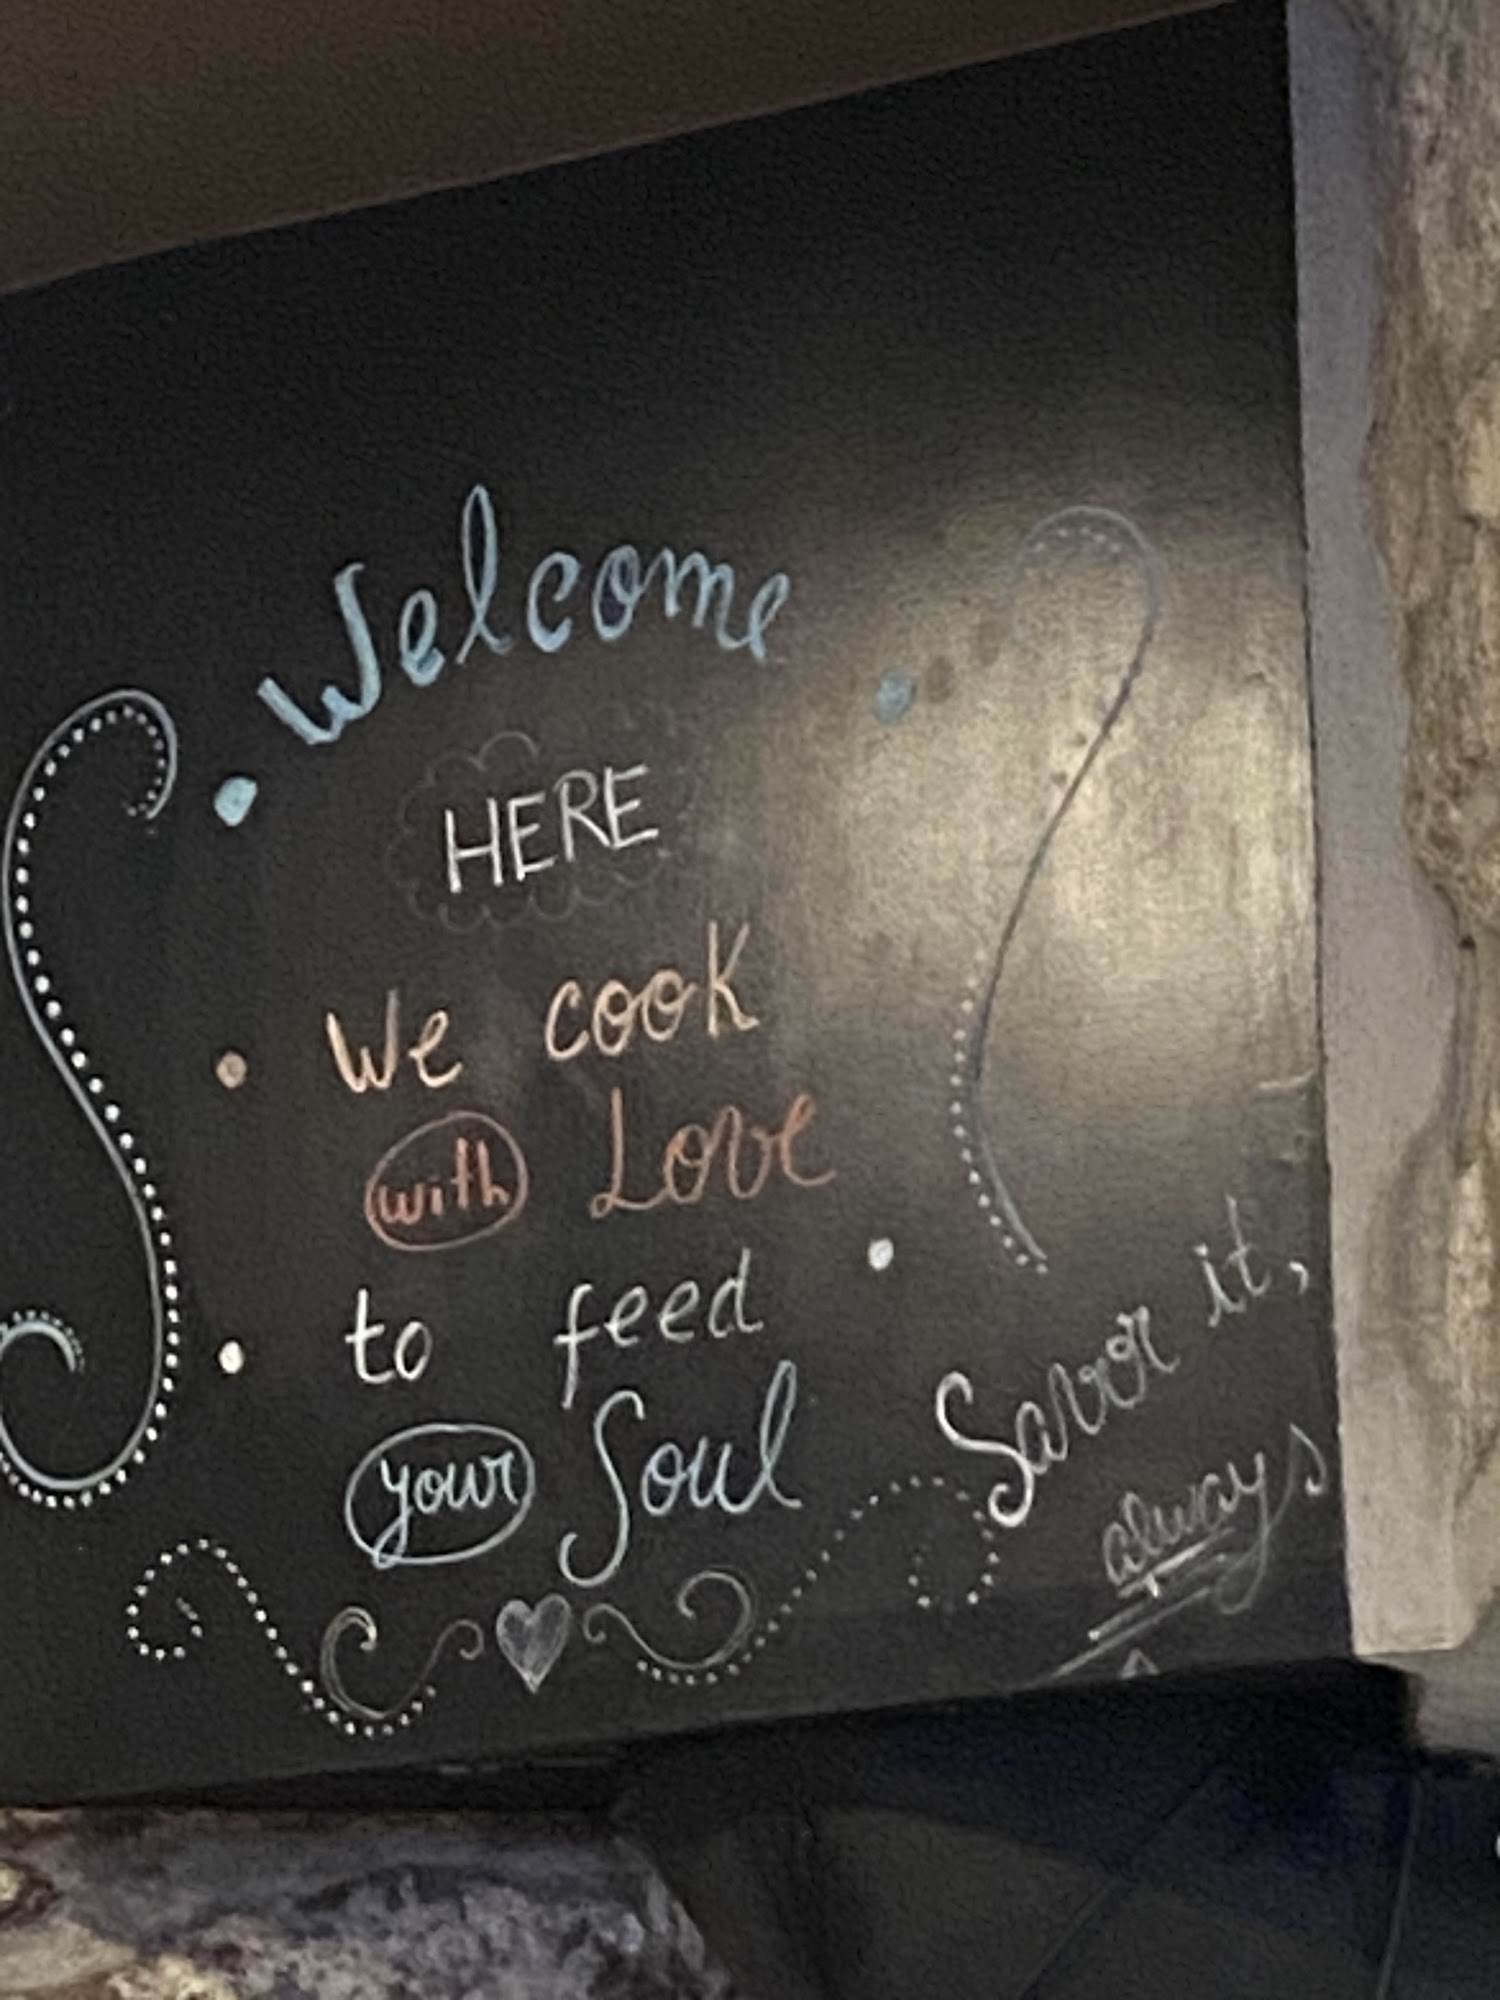 Welcome
HERE
We cook
with Love
to feed
your Soul
Savor it,
always